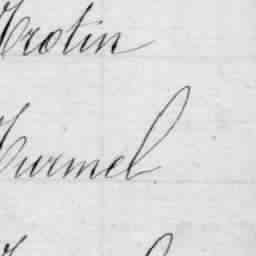 Krotin
Kurmel